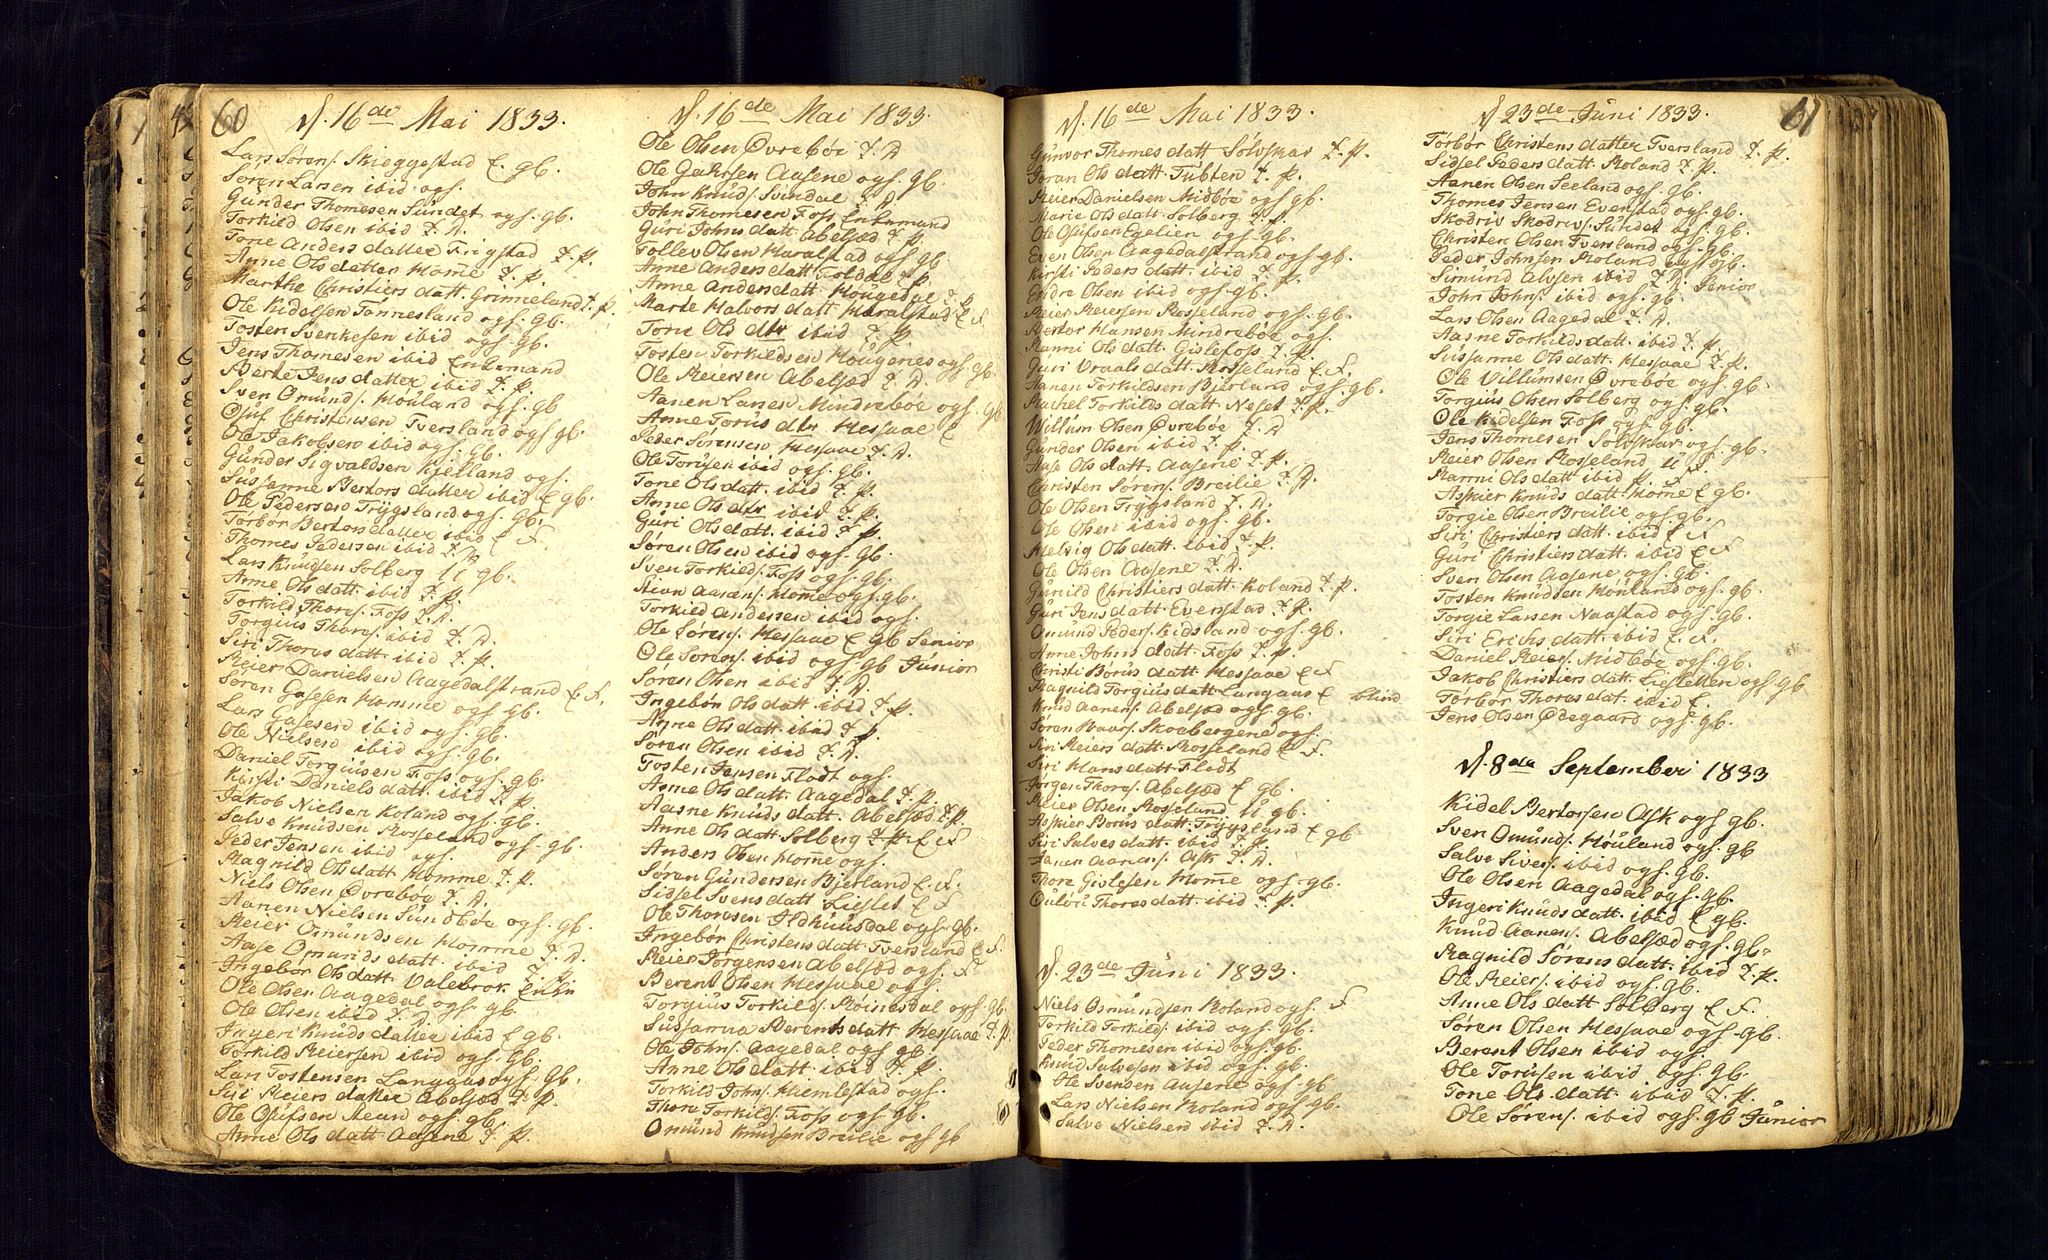 60
d. 16de Mai 1833.
Lars Sørens. Skieggestad E. gb.
Søren Larsen ibid ogs.
Gunder Thomesen Sundet ogs. gb.
Torkild Olsen ibid T. D.
Tone Anders datter Frigstad T. P.
Anne Ols datter Home T. P.
Marthe Christiers datt. Grimeland T. P.
Ole Kidelsen Tønnesland ogs. gb.
Tosten Svenkesen ibid ogs. gb.
Jens Thomesen ibid Enkemand
Berte Jens datter ibid T. P.
Sven Omund. Houland ogs. gb
Osul Christensen Tversland ogs gb.
Ole Jakobsen ibid ogs. gb.
Gunder Sigvaldsen Kjelland ogs.
Susanne Bertors datter ibid E gb.
Ole Pedersen Trygsland ogs. gb.
Torbør Bertors datter ibid E F.
Thomes Pedersen ibid T. D
Lars Knudsen Solberg U gb.
Anne Ols datt. ibid T. P.
Torkild Thors. Foss T. D.
Torgius Thors. ibid T. D.
Siri Thores datt ibid T. P.
Reier Danielsen Aagedalstrand E. F.
Søren Gassen Homme ogs. gb.
Lars Gasesen ibid ogs. gb.
Ole Nielsen ibid ogs. gb.
Daniel Torgiusen Foss ogs. gb.
Kirsti Daniels datt. ibid T. P.
Jakob Nielsen Roland ogs. gb.
Salve Knudsen Rosseland ogs. gb.
Peder Jensen ibid ogs.
Magnild Ols datt Homme T. P.
Niels Olsen Øvrebøe T. D.
Aanen Nielsen Sundbøe ogs. gb.
Reier Osmundsen Homme T. D.
Aase Omunds datt. ibid T. P.
Ingebør Ols datt Valebrok Enke
Ole Olsen Aagedal ogs. gb.
Ole Olsen ibid T. D.
Ingeri Knuds datter ibid E gb.
Torkild Reiersen ibid ogs. gb.
Lars Tostensen Langaas ogs. gb.
Siri Reiers datter Abelsæd T. P.
Ole Osulsen Steand ogs. gb.
Anne Ols datt Aasene T. P.
d. 16de Mai 1833.
Ole Olsen Øvrebøe T. D
Ole Gahrsen Aasene ogs. gb.
John Knuds. Svindal T. D
John Thomesen Foss Enkemand
Guri Johns datt Abelsæd T. P.
Follev Olsen Haralstad ogs. gb
Anne Anders datt Foldal T. P.
Anne Anders datt. Hougedal T. P
Marte Halvors datt Haralstad E F
Tone Ols dtr ibid T. P.
Tosten Torkildsen Hougenes ogs gb.
Ole Reiersen Abelsæd T. D.
Aanen Larsen Mindrebøe ogs. gb
Anne Torus dtr Hessaae E
Peder Sørensen Hessaae T. D.
Ole Torusen ibid ogs. gb.
Tone Ols datt. ibid T. P.
Anne Ols dtr ibid T. P.
Guri Ols datt. ibid T. P.
Søren Olsen ibid ogs. gb.
Sven Torkilds. Foss ogs. gb.
Stian Aasens. Home ogs. gb.
Torkild Andersen ibid ogs.
Ole Sørens. Hessaae E gb Senior
Ole Sørens. ibid ogs gb Junior
Søren Olsen ibid T. D.
Ingebør Ols datt. ibid T. P.
Anne Ols datt. ibid T. P.
Søren Olsen ibid T. D.
Tosten Jensen Flodt ogs.
Anne Ols datt. Aagedal T. P.
Aasne Knuds datt. Abelsæd T. P
Anne Ols datt Solberg T. P. E F
Anders Olsen Home ogs.
Søren Gundersen Bjerland E. F.
Sidsel Svens datt Lislet E F
Ole Thoresen Ildhuusdal ogs. gb.
Ingebør Christens datt Tversland E F.
Reier Jørgensen Abelsæd ogs. F
Berent Olsen Hessaae ogs
Torgius Torkilds. Høinesdal ogs. gb.
Sussanna Berents datt Hessaae T. P.
Ole Johns. Aagedal ogs gb.
Anne Ols datt ibid T. P.
Torkild Johns. Hiemlestad ogs.
Thore Torkilds. Foss ogs. gb.
Omund Knudsen Breilie ogs gb
d. 16de Mai 1833.
Gunvor Thomes datt Solvskar T. P.
Joran Ols datt Tubten T. P.
Reier Danielsen Midbøe ogs gb.
Marie Ols datt. Solberg T. P.
Ole Osulsen Egelien ogs. gb.
Even Olsen Aagedalstrand ogs gb.
Kirsti Peders datt. ibid T. P.
Endre Olsen ibid ogs. gb.
Reier Reiersen Rosseland ogs. gb.
Bertor Hansen Mindrebøe ogs.
Ranni Ols datt. Gislefoss T. P.
Guri Vraals datt. Rosseland E F.
Aanen Torkildsen Bjerland ogs. gb.
Rachel Torkilds datt. Neset T. P.
Willum Olsen Øvrebøe T. D
Gunder Olsen ibid T. P.
Aase Ols datt Aasene T. P.
Christen Sørens. Breilie T. D
Ole Olsen Trygsland T. D.
Ole Olsen ibid ogs. gb.
Helvig Ols datt. ibid T. P.
Ole Olsen Aasene T. D.
Gunild Christiers datt. Roland T. P.
Guri Jens datt. Everstad T. P.
Omund Peders. Kidsland ogs. gb.
Anne Johns datt Foss T. P.
Christi Børus datt Hessaae E F
Magnild Torgius datt Langaas E blind
Knud Aanens. Abelsæd ogs. gb.
Søren Haavs. Skoebergene ogs.
Siri Reiers datt. Rosseland E F.
Siri Hans datt Flodt
Jørgen Thors. Abelsæd E gb.
Reier Olsen Rosseland U gb.
Askier Børus datt. Trygsland E gb
Siri Salves datt. ibid T. P.
Aanen Aanens. Ask T. D.
Thore Gislesen Home ogs. gb.
Gulov Thores datt. ibid T. P.
d. 23de Juni 1833.
Niels Osmundsen Roland ogs. F
Torkild Torkilds. ibid ogs. gb.
Peder Thomesen ibid ogs. gb.
Knud Salvesen ibid ogs. gb.
Ole Svensen Aasene ogs. gb
Lars Nielsen Roland ogs. gb.
Salve Nielsen ibid T. D.
61
d. 23de Juni 1833.
Torbør Christens datter Tversland T. P.
Sidsel Peders datt. Roland T. P.
Aanen Olsen Seeland ogs. gb.
Thomes Jensen Everstad ogs. gb.
Skodriv Skodrivs. Sundet ogs. gb.
Christen Olsen Tversland ogs. gb.
Peder Johnsen Roland ogs gb.
Simund Alvsen ibid T. D. Senior
John Johns. ibid ogs. gb.
Lars Olsen Aagedal T. D.
Aasne Torkilds datt. ibid T. P.
Sussanne Ols datt. Hessaae T. P.
Ole Villumsen Øvrebøe ogs. gb.
Torgius Olsen Solberg ogs. gb.
Ole Kidelsen Foss ogs. gb.
Jens Thomesen Solvskar ogs. gb.
Reier Olsen Rosseland U F.
Ranni Ols datt ibid T. P.
Askier Knuds datt. Home E gb.
Torgie Olsen Breilie ogs. gb.
Siri Christiers datt. ibid E F
Guri Christiers datt. ibid E F
Sven Olsen Aasene ogs. gb.
Tosten Knudsen Houland ogs. gb.
Torgie Larsen Naastad ogs. gb.
Siri Erichs datt. ibid E. F.
Daniel Reiers. Midbøe ogs. gb.
Jakob Christiers datt. Lisletten ogs gb
Torbør Thores dat. ibid E.
Jens Olsen Ødegaard ogs. gb.
d. 8de September 1833
Kidel Bertorsen Ask ogs gb.
Sven Omunds. Houland ogs. gb
Salve Sivers. ibid ogs. gb.
Ole Olsen Aagedal ogs. gb.
Ingeri Knuds datt. ibid E gb.
Knud Aanens. Abelsæd ogs. gb.
Magnild Sørens datt. ibid T. P.
Ole Reiers. ibid ogs. gb.
Anne Ols datt Solberg E F.
Søren Olsen Hessaae ogs. gb.
Berent Olsen ibid ogs.
Ole Torusen ibid ogs. gb.
Tone Ols datt. ibid T. P.
Ole Sørens. ibid ogs. gb Junior